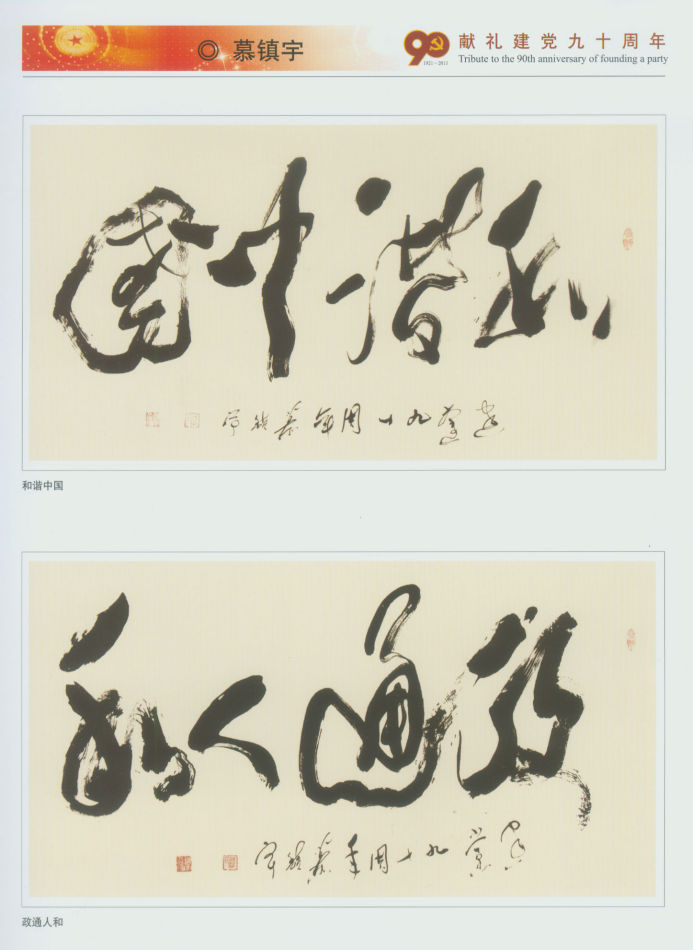 ◎ 慕镇宇
90
1921-2011
献礼建党九十周年
Tribute to the 90th anniversary of founding a party
和谐中国
九十周年慕镇宇
和谐中国
政通人和
党九十周年慕镇宇
政通人和